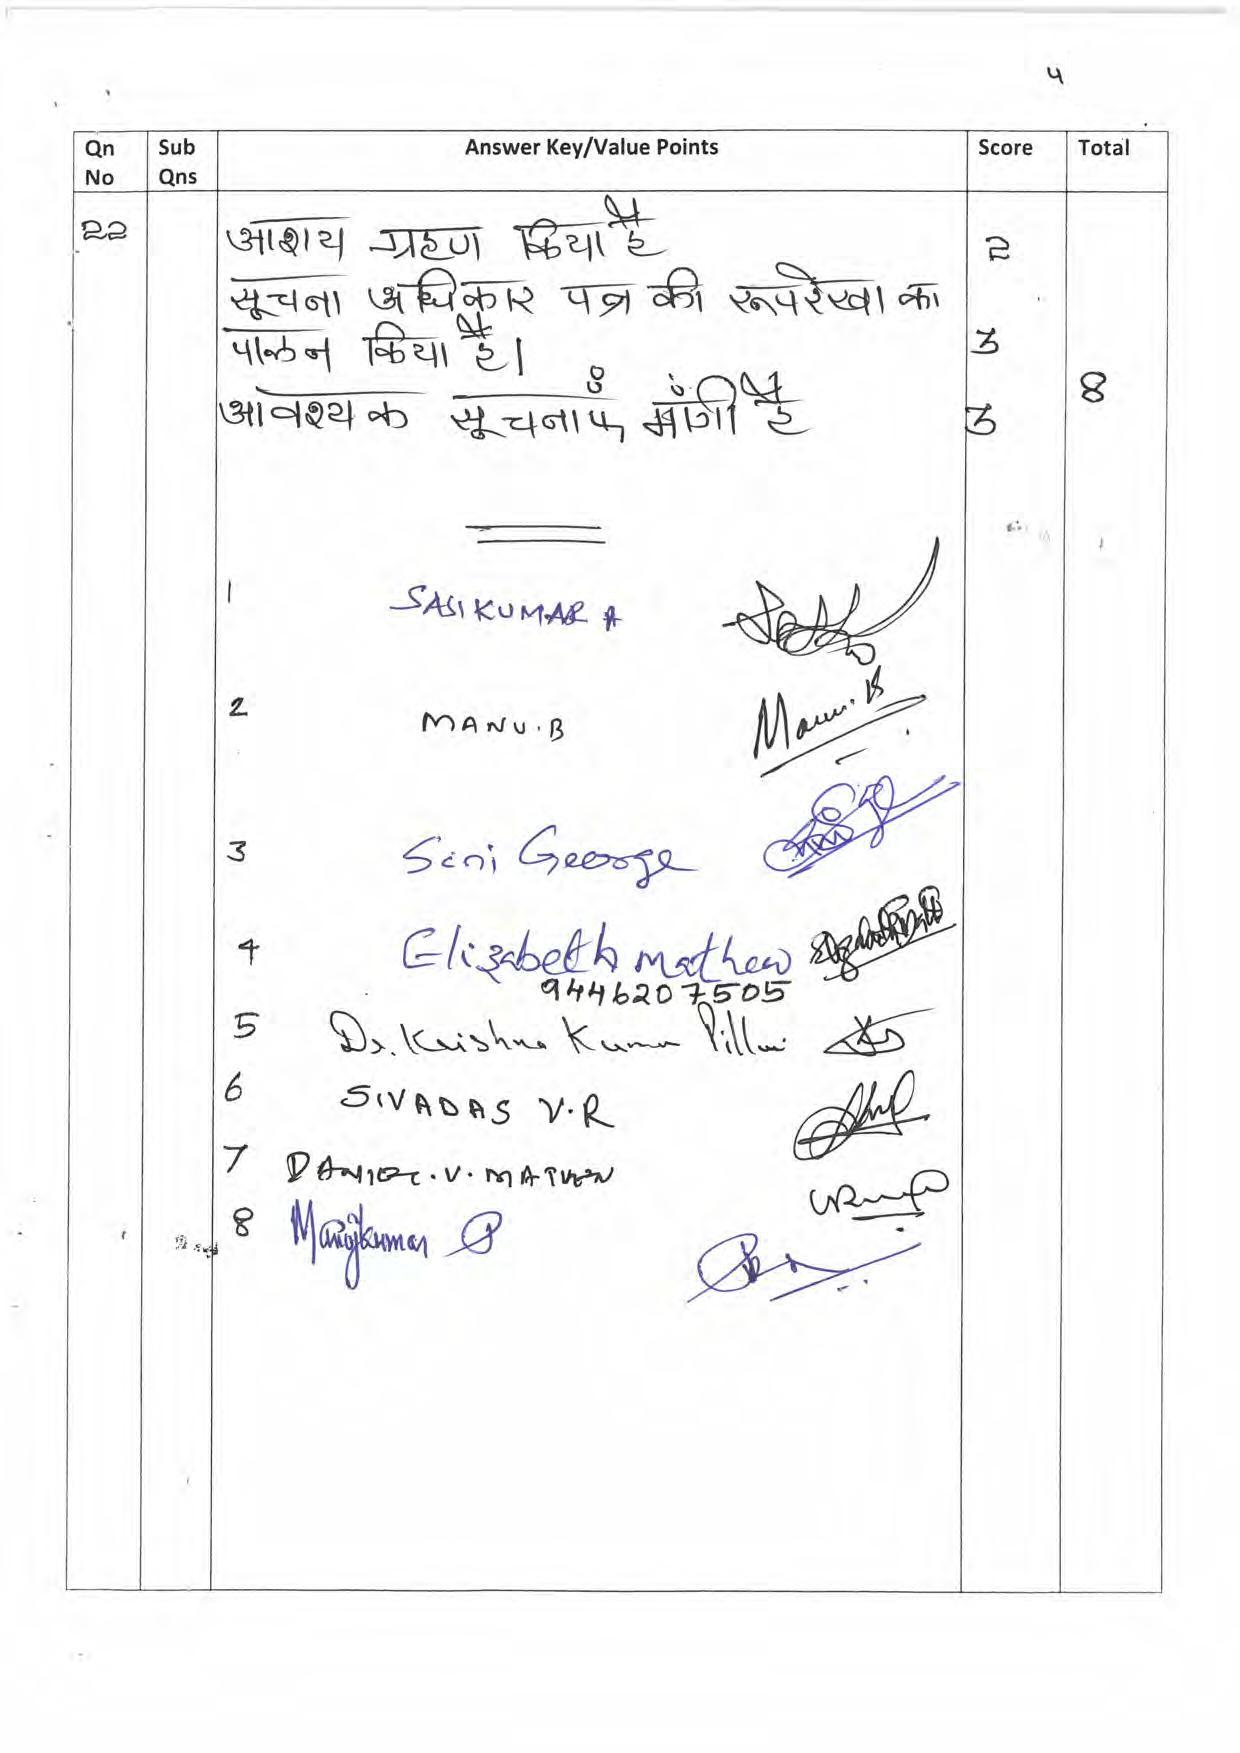 4
Qn No
Sub Qns
Answer Key/Value Points
Score
Total
22
आशय ग्रहण किया है
2
सूचना अधिकार पत्र की रूपरेखा का
पालन किया है।
3
8
आवश्यक सूचनाएँ मांगी है
3
1 SASIKUMAR A
2 MANU.B Manu.B
3 Seni George
4 Elizabeth mathew
9446207505
5 Dr. Krishna Kumar Pillai
6 SIVADAS V.R
7 DANIEL.V.MATHEW
8 Manojkumar P